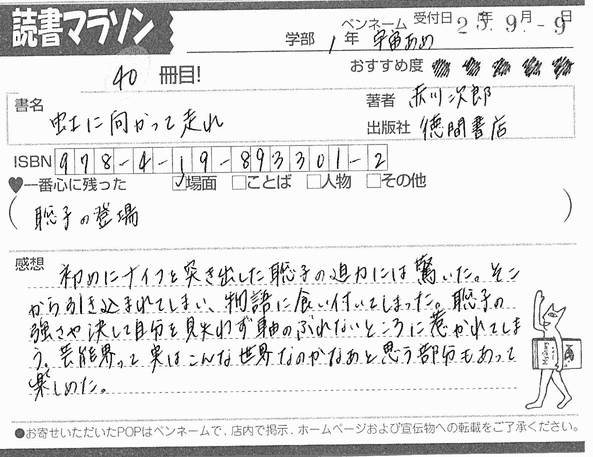 読書マラソン
学部 1 年 ペンネーム 宇宙あめ 受付日 25年 9.月-9日
40 冊目!
おすすめ度
書名 虹に向かって走れ
著者 赤川次郎
出版社 徳間書店
ISBN 978-4-19-893301-2
♥一番心に残った ☑場面 □ことば □人物 □その他
(聡子の登場)
感想 初めにナイフを突き出した聡子の迫力には驚いた。そこ
から引き込まれてしまい、物語に食い付いてしまった。聡子の
強さや決して自分を見失わず軸のぶれないところに惹かれてしま
う。芸能界って実はこんな世界なのかなあと思う部分もあって
楽しめた。
●お寄せいただいたPOPはペンネームで、店内で掲示、ホームページおよび宣伝物への転載をご了承ください。